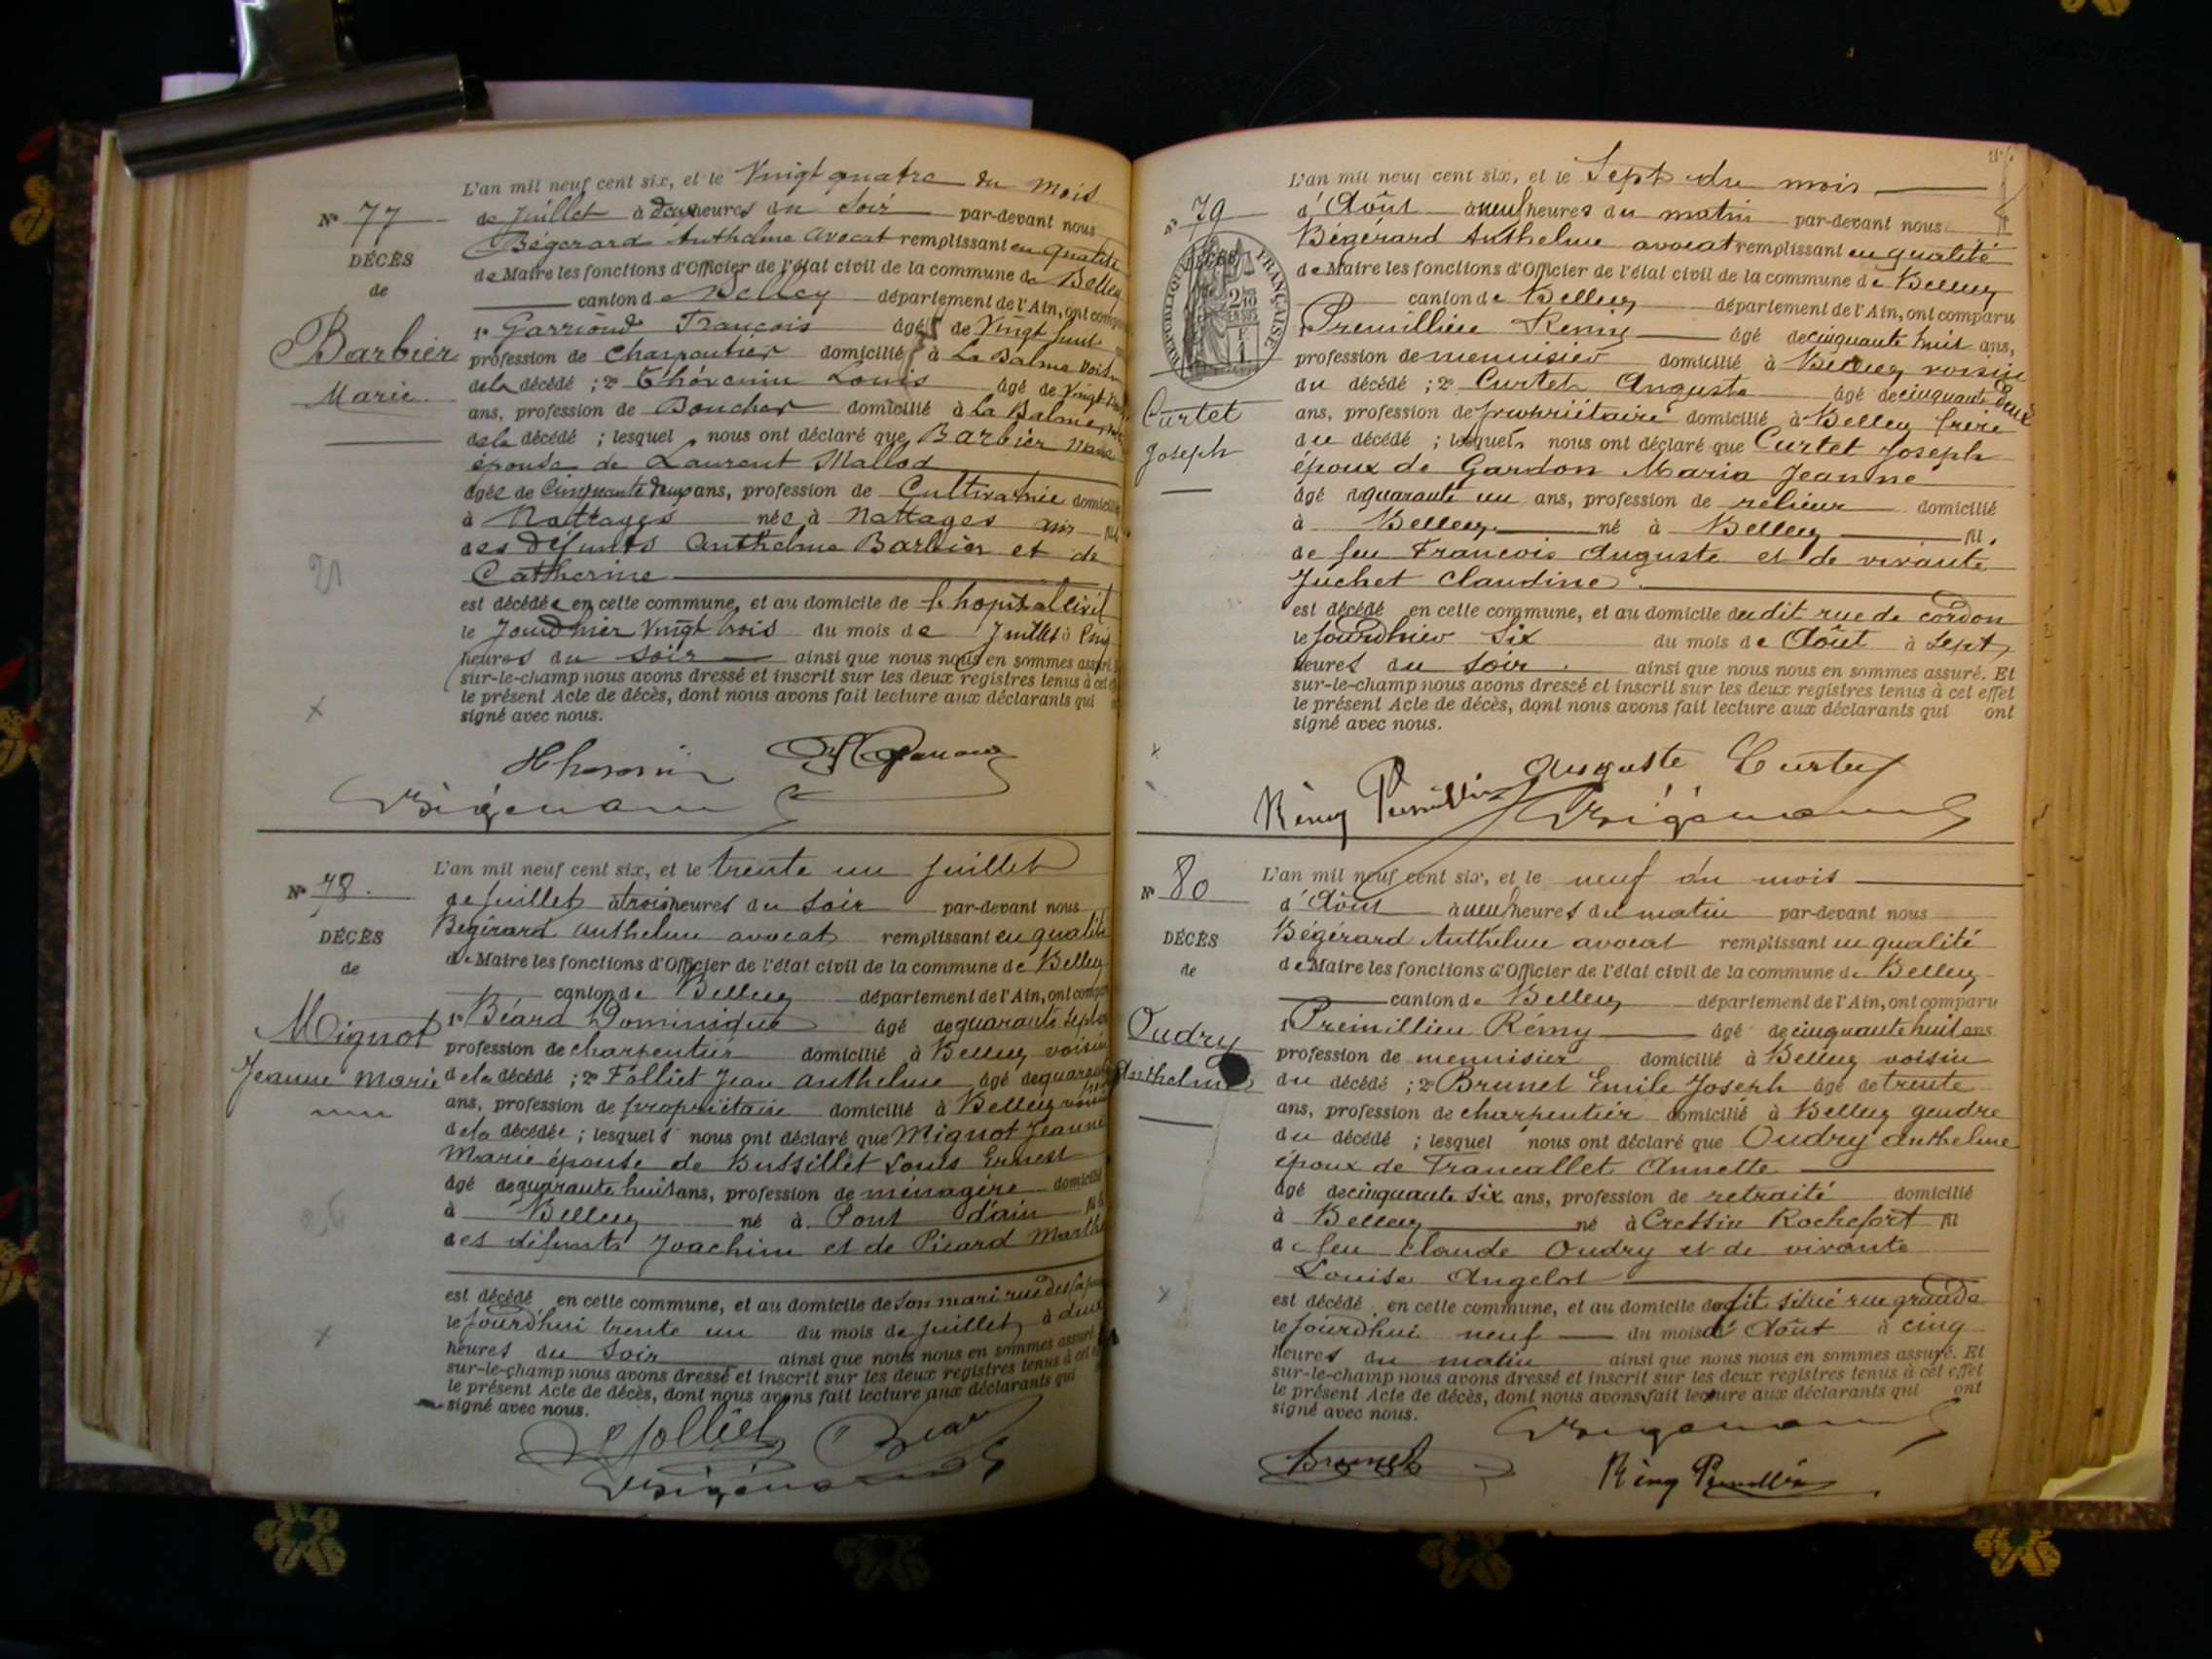 L'an mil neuf cent six, et le Vingt quatre du mois
N° 77
de Juillet à deux heures du Soir par-devant nous
Bégérard Anthelme avocat remplissant en qualité
DÉCÈS
de Maire les fonctions d'Officier de l'état civil de la commune de Belley
de
canton de Belley département de l'Ain, ont
1° François âgé de Vingt huit
Barbier
profession de Charpentier domicilié à La Balme
Marie
de la décédé ; 2° Louis âgé de Vingt
ans, profession de Boucher domicilié à La Balme
de la décédé ; lesquel nous ont déclaré que Barbier Marie
épouse de Laurent Mallod
âgée de Cinquante deux ans, profession de Cultivatrice
à Nattages née à Nattages
des défunts Anthelme Barbier et de
21
Catherine
est décédée en cette commune, et au domicile de l'hopital civil
le Jourd'hier Vingt trois du mois de Juillet à Cinq
heures du soir ainsi que nous nous en sommes
sur-le-champ nous avons dressé et inscrit sur les deux registres tenus à cet
x
le présent Acte de décès, dont nous avons fait lecture aux déclarants qui
signé avec nous.
L'an mil neuf cent six, et le trente un juillet
N° 78.
de juillet à trois heures du Soir par-devant nous
Bégérard Anthelme avocat remplissant en qualité
DÉCÈS
de Maire les fonctions d'Officier de l'état civil de la commune de Belley
de
canton de Belley département de l'Ain, ont
1° Béard Dominique âgé de quarante sept
Mignot
profession de charpentier domicilié à Belley voisin
Jeanne Marie
de la décédé ; 2° Folliet Jean Anthelme âgé de quarante
ans, profession de propriétaire domicilié à Belley voisin
de la décédée ; lesquels nous ont déclaré que Mignot Jeanne
Marie épouse de Bussillet Louis Ernest
âgé de quarante huit ans, profession de ménagère domicilié
à Belley né à Pont d'ain
des défunts Joachim et de Picard Marthe
est décédé en cette commune, et au domicile de son mari rue des
le jourd'hui trente un du mois de juillet à deux
x
heures du Soir ainsi que nous nous en sommes assuré
sur-le-champ nous avons dressé et inscrit sur les deux registres tenus à cet
le présent Acte de décès, dont nous avons fait lecture aux déclarants qui
signé avec nous.
Folliet Béard
L'an mil neuf cent six, et le Sept du mois
N° 79
d'Août à neuf heures du matin par-devant nous
Bégérard Anthelme avocat remplissant en qualité
DÉCÈS
RÉPUBLIQUE FRANÇAISE
de Maire les fonctions d'Officier de l'état civil de la commune de Belley
canton de Belley département de l'Ain, ont comparu
1° Premillieu Remy âgé de cinquante huit ans,
profession de menuisier domicilié à Belley voisin
du décédé ; 2° Curtet Auguste âgé de cinquante deux
Curtet
ans, profession de propriétaire domicilié à Belley frère
Joseph
du décédé ; lesquels nous ont déclaré que Curtet Joseph
époux de Gardon Maria Jeanne
âgé de quarante un ans, profession de relieur domicilié
à Belley né à Belley fil
de feu Francois Auguste et de vivante
Juchet Claudine
est décédé en cette commune, et au domicile dudit rue de cordon
le jourd'hier Six du mois de Août à Sept
heures du Soir ainsi que nous nous en sommes assuré. Et
sur-le-champ nous avons dressé et inscrit sur les deux registres tenus à cet effet
le présent Acte de décès, dont nous avons fait lecture aux déclarants qui ont
signé avec nous.
x
Auguste Curtet
Rémy Premillieu
L'an mil neuf cent six, et le neuf du mois
N° 80
d'Août à neuf heures du matin par-devant nous
Bégérard Anthelme avocat remplissant en qualité
DÉCÈS
de Maire les fonctions d'Officier de l'état civil de la commune de Belley
de
canton de Belley département de l'Ain, ont comparu
1° Premillieu Rémy âgé de cinquante huit ans
Oudry
profession de menuisier domicilié à Belley voisin
Anthelme
du décédé ; 2° Brunet Emile Joseph âgé de trente
ans, profession de charpentier domicilié à Belley gendre
du décédé ; lesquel nous ont déclaré que Oudry Anthelme
époux de Francallet Annette
âgé de cinquante six ans, profession de retraité domicilié
à Belley né à Cressin Rochefort fil
de feu Claude Oudry et de vivante
Louise Angelot
x
est décédé en cette commune, et au domicile dudit situé rue grande
le jourd'hui neuf du mois d'Août à cinq
heures du matin ainsi que nous nous en sommes assuré. Et
sur-le-champ nous avons dressé et inscrit sur les deux registres tenus à cet effet
le présent Acte de décès, dont nous avons fait lecture aux déclarants qui ont
signé avec nous.
Brunet
Rémy Premillieu